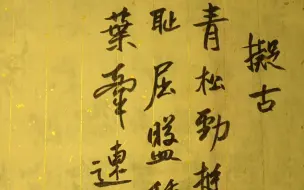 擬古
青松勁挺
耻屈盤
葉牽連